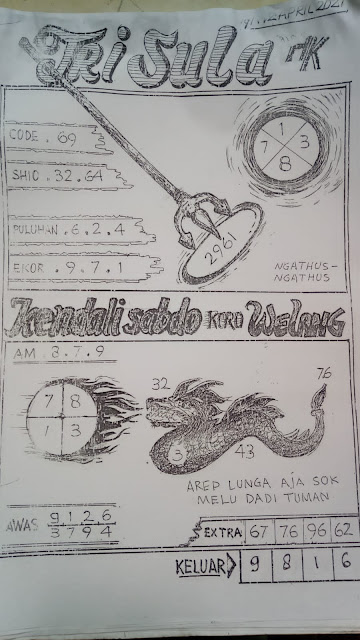 APRIL 2021
Tri Sula MK
CODE . 69
SHIO . 32 . 64
PULUHAN . 6 . 2 . 4
EKOR . 9 . 7 . 1
1
7 3
8
2961
NGATHUS-
NGATHUS
Kendali sabdo KARO WELANG
AM . 3 . 7 . 9
7 8
1 3
32
76
3
43
AREP LUNGA AJA SOK
MELU DADI TUMAN
AWAS 9 1 2 6
3 7 9 4
EXTRA 67 76 96 62
KELUAR 9 8 1 6